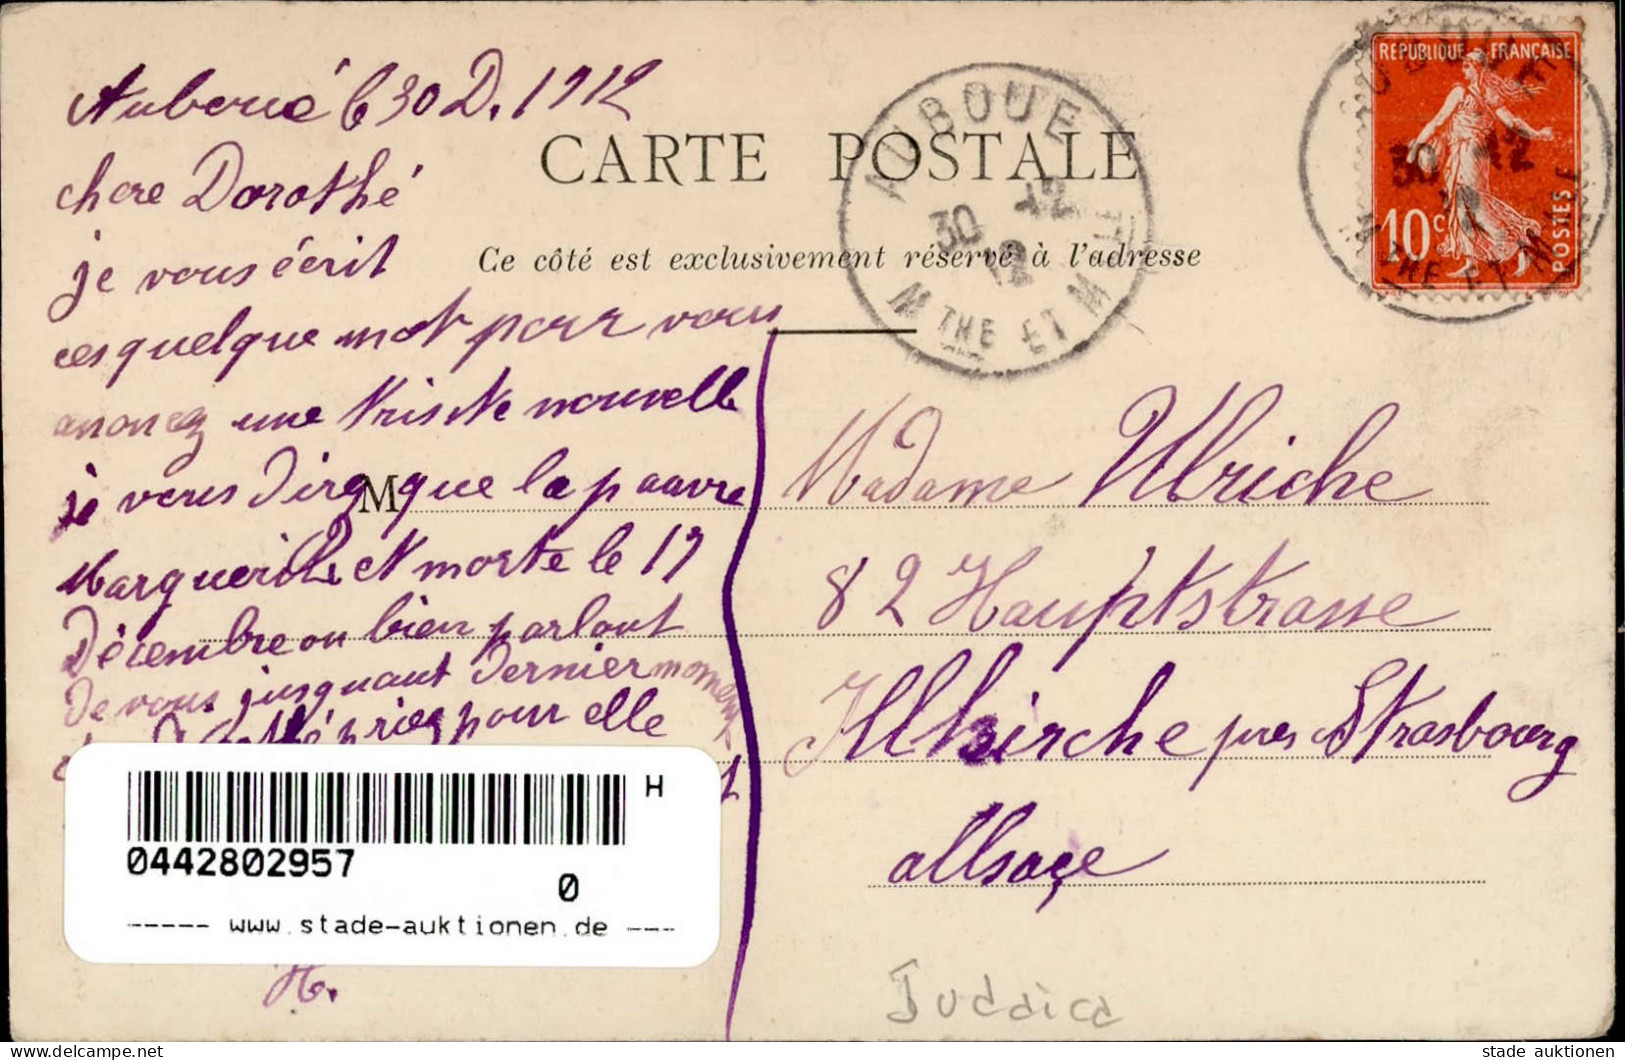 Auboué le 30 D. 1912
chere Dorothé
je vous écrit
ces quelque mot pour vous
anoncez une triste nouvelle
je vous dire que la paavre
Marguerite et morte le 17
Décembre on bien parlout
de vous jusquant dernier moment
priez pour elle
H.
CARTE POSTALE
Ce côté est exclusivement réservé à l'adresse
M
AUBOUE
30 -12
12
MTHE ET M
REPUBLIQUE FRANÇAISE
10c
POSTES
AUBOUE
30 -12
MTHE ET M
Madame Ulriche
82 Hauptstrasse
Illkirche pres Strasbourg
allsaçe
H
0442802957
0
----- www.stade-auktionen.de ---
Judaica
delcampe.net
stade_auktionen